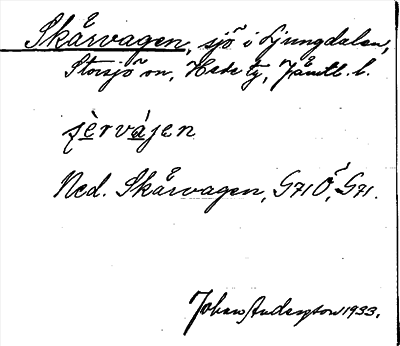 Skårvagen, sjö i Ljungdalen,
Storsjö sn, Hede tg, Jämtl. l.
fèrvájen
Ned. Skårvagen, G71Ö, G71.
Johan Anderson 1933.